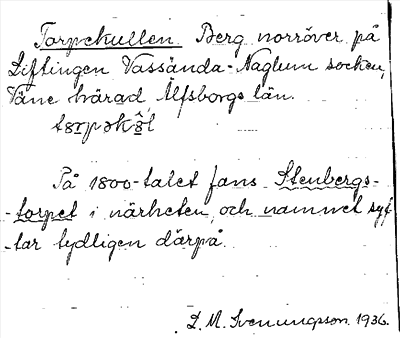 Torpekullen Berg norröver på
Liftingen Vassända-Naglum socken,
Väne härad, Älfsborgs län.
På 1800-talet fans Stenbergs-
-torpet i närheten, och namnet syf-
-tar tydligen därpå.
L. M. Svenungsson 1936.